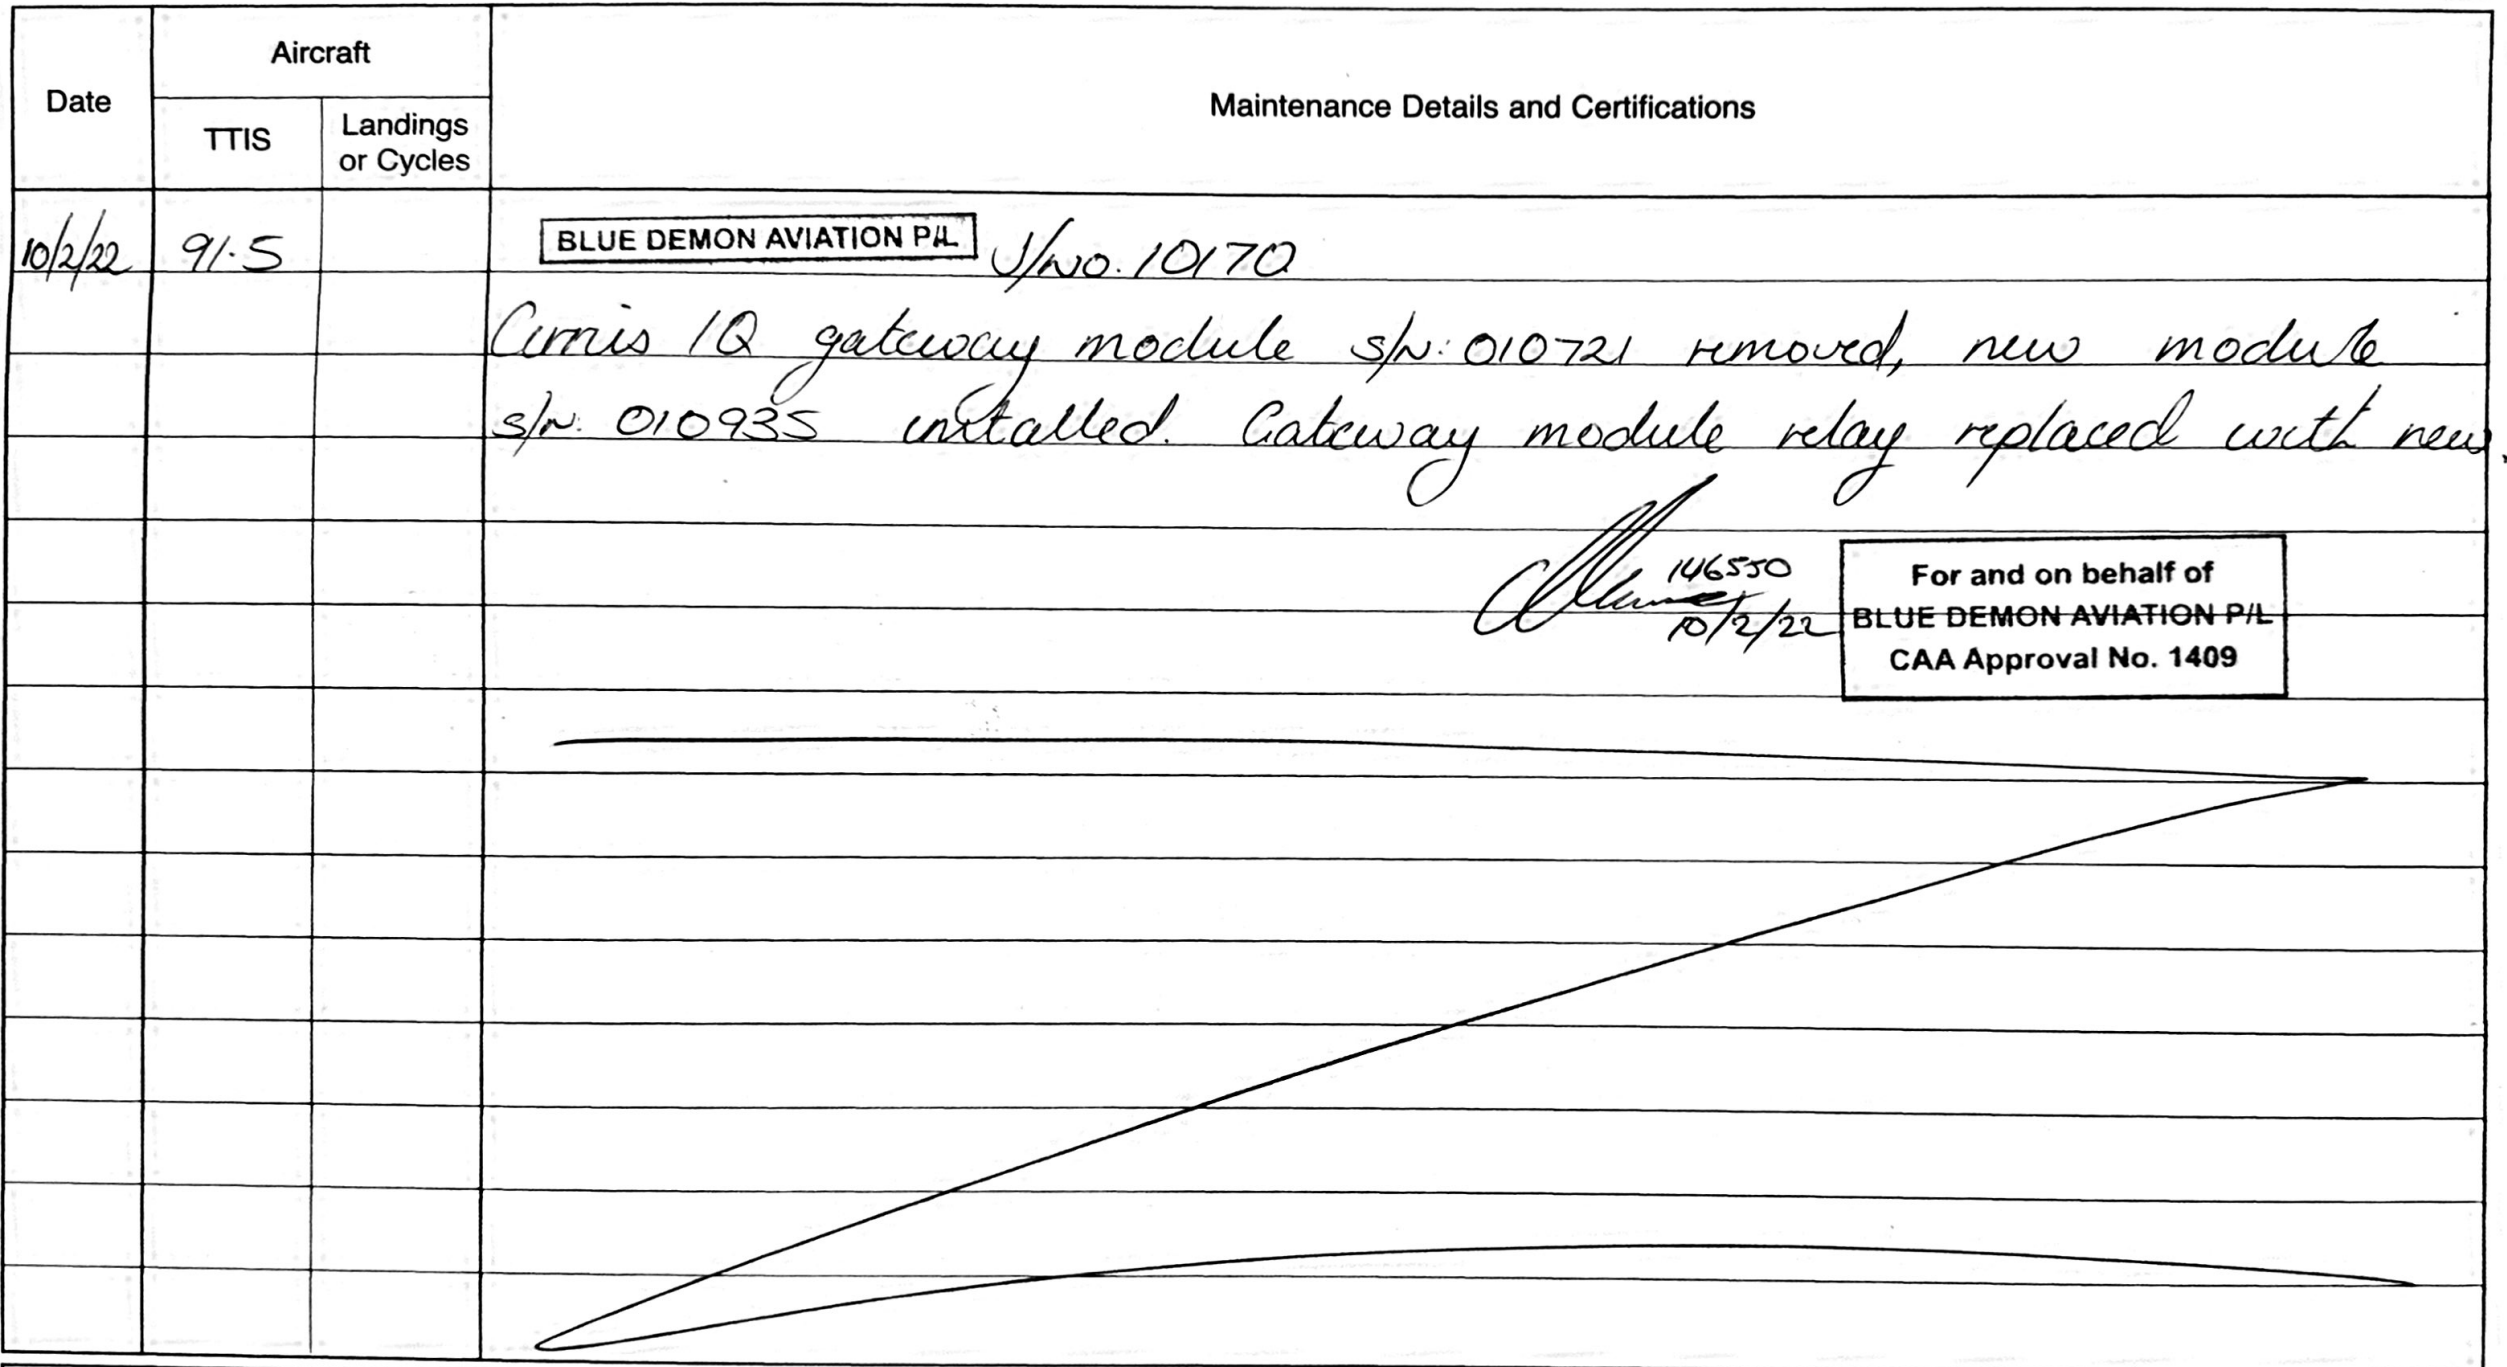 Date
Aircraft
TTIS
Landings
or Cycles
Maintenance Details and Certifications
10/2/22 91.5 BLUE DEMON AVIATION P/L J/No. 10170
Cirrus IQ gateway module s/N: 010721 removed, new module
s/N: 010935 installed. Gateway module relay replaced with new.
146550
10/2/22
For and on behalf of
BLUE DEMON AVIATION P/L
CAA Approval No. 1409